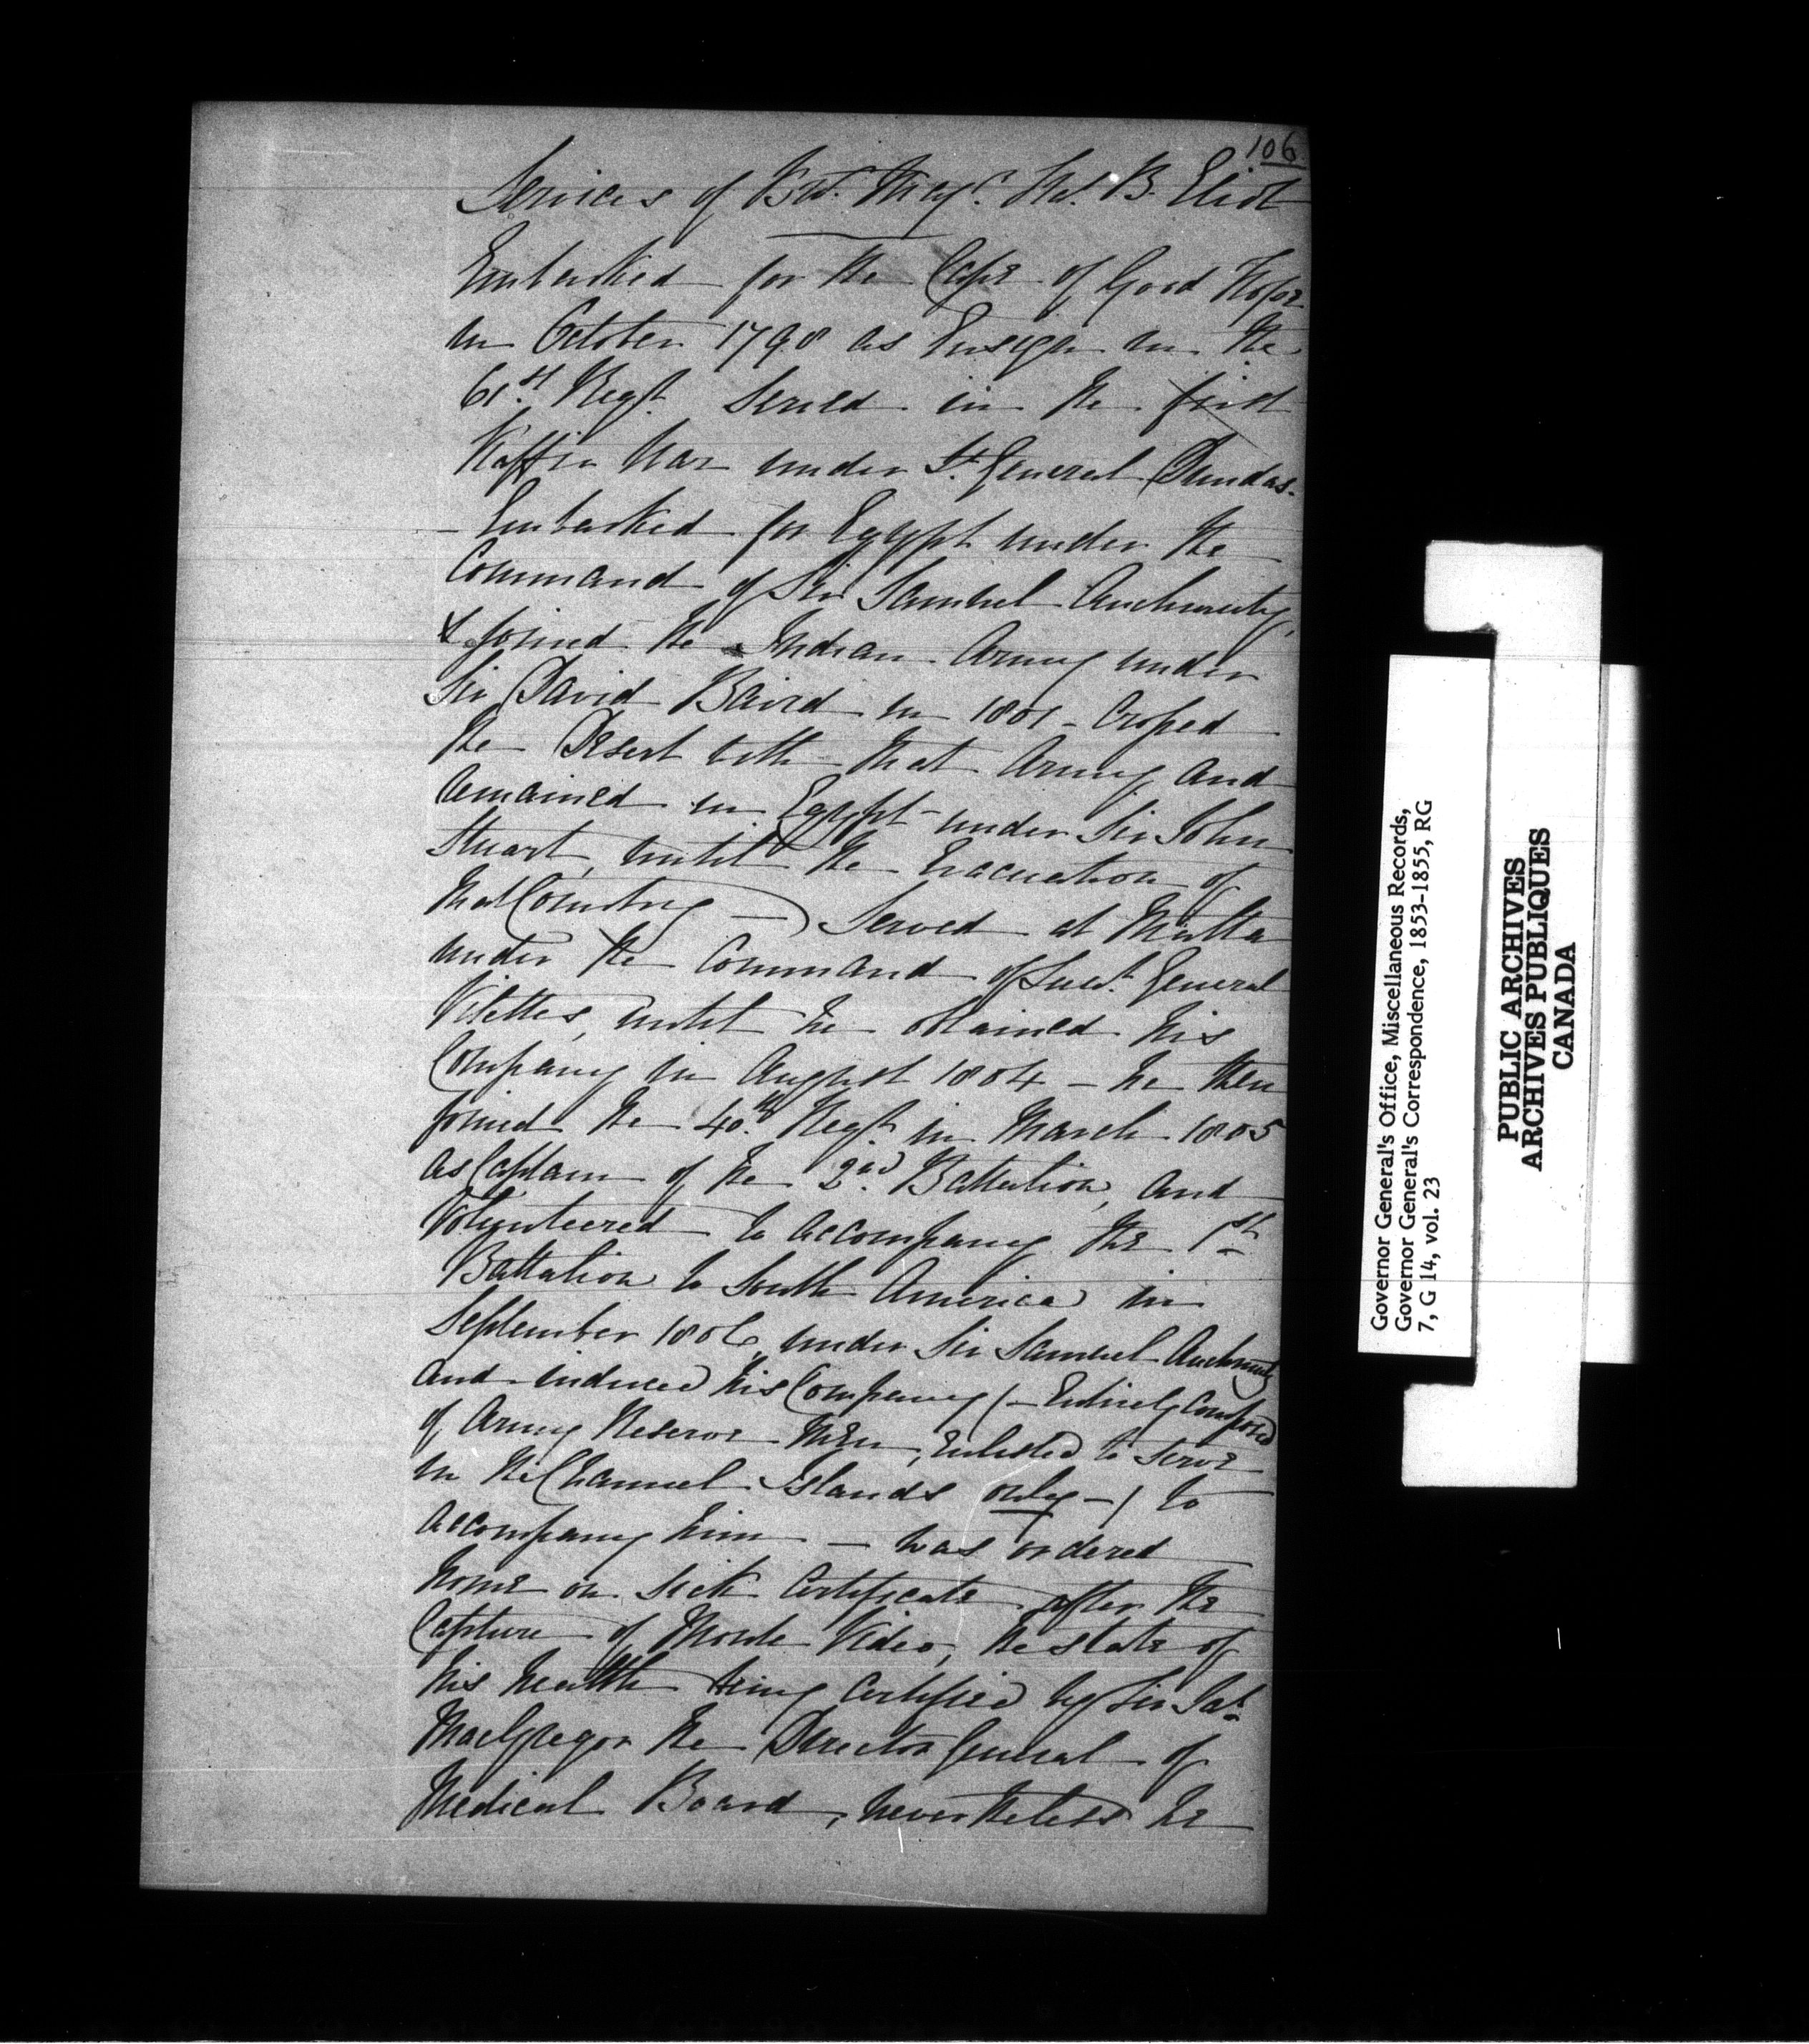 106
Services of Bt. Majr. Thos. B. Eliot
Embarked for the Cape of Good Hope
in October 1798 as Ensign in the
61st. Regt. Served in the first
Kaffir War under Lt. General Dundas.
- Embarked for Egypt under the
Command of Sir Samuel Auchmuty,
& joined the Indian Army under
Sir David Baird in 1801 - Crossed
the Desert with that Army and
remained in Egypt under Sir John
Stuart, until the Evacuation of
that Country — Served at Malta
under the Command of Lieut. General
Vilettes, until he obtained his
Company in August 1804 - he then
joined the 40th. Regt. in March 1805
as Captain of the 2nd. Battalion, and
Volunteered to accompany the 1st
Battalion to South America in
September 1806, under Sir Samuel Auchmuty
and induced his Company (- Entirely Composed
of Army Reserve Men, Enlisted to serve
in the Channel Islands only -) to
accompany him — was ordered
home on sick Certificate after the
Capture of Monte Video, the state of
his health being certified by Sir Jas.
MacGregor the Director General of
Medical Board, nevertheless he
Governor General's Office, Miscellaneous Records,
Governor General's Correspondence, 1853-1855, RG
7, G 14, vol. 23
PUBLIC ARCHIVES
ARCHIVES PUBLIQUES
CANADA